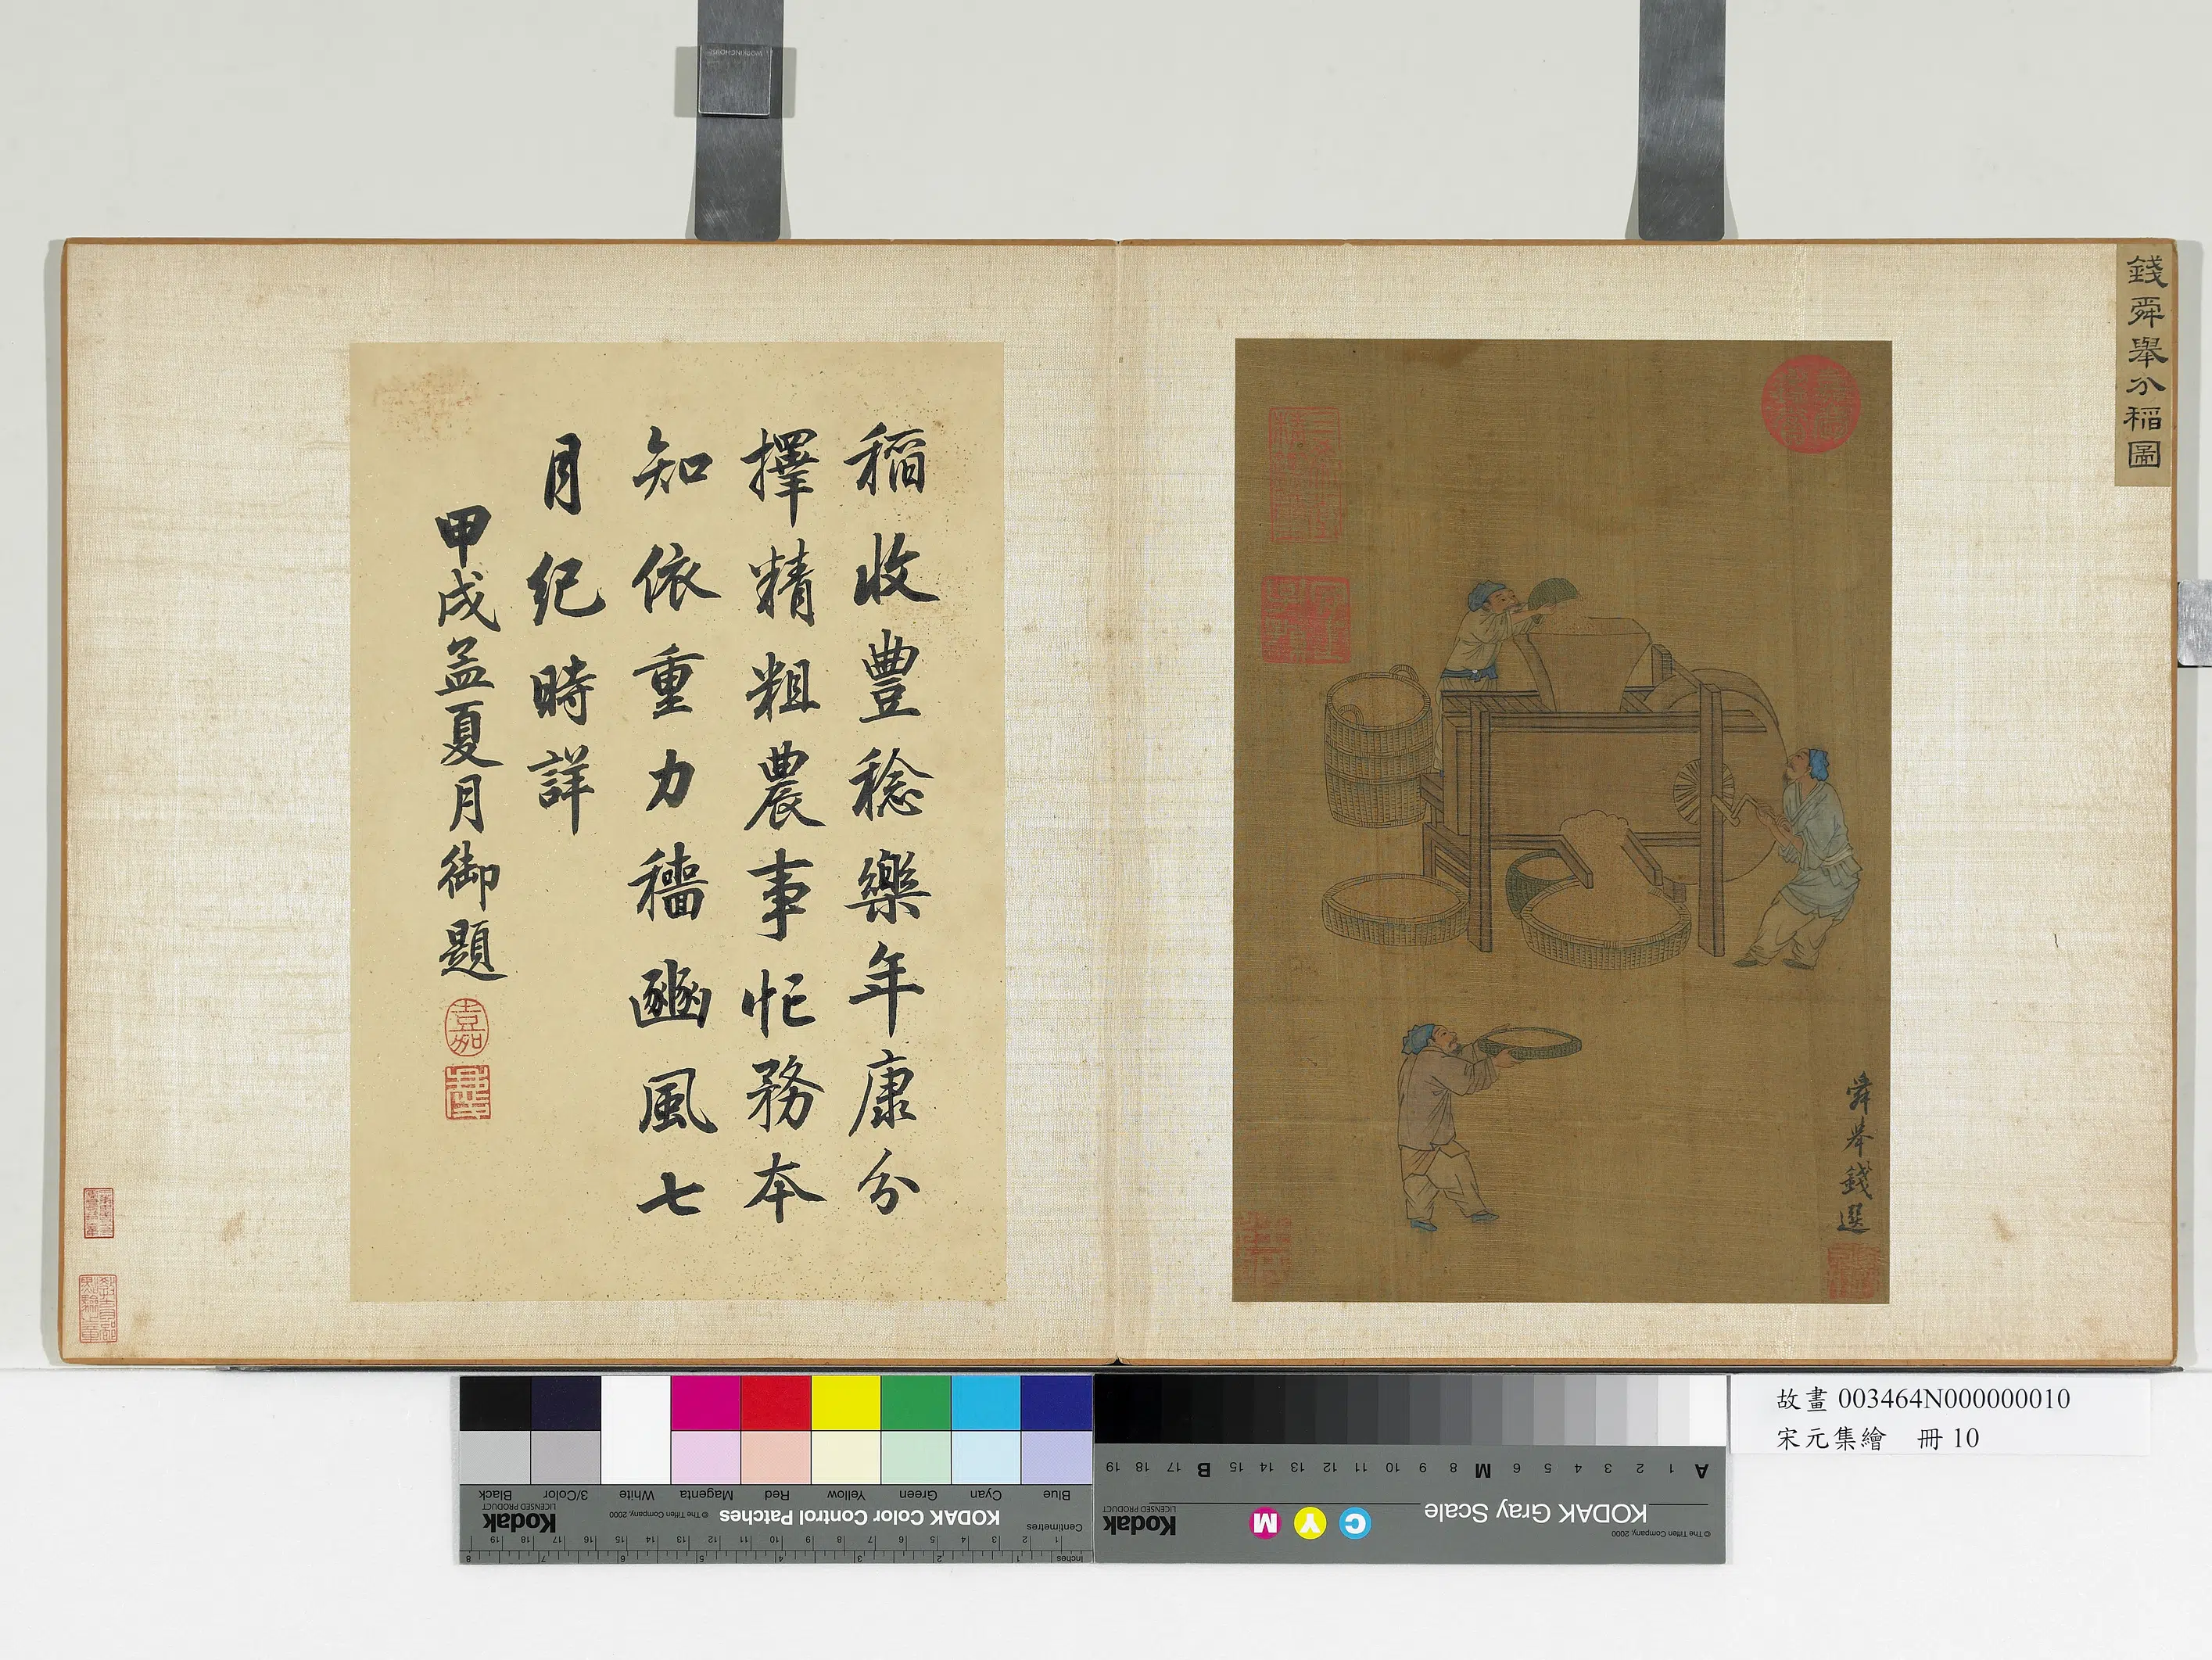 錢舜舉分稻圖
舜舉錢選
稻收豐稔樂年康分
擇精粗農事忙務本
知依重力穡豳風七
月紀時詳
甲戌孟夏月御題
嘉
故畫 003464N000000010
宋元集繪 冊 10
KODAK Color Control Patches
© The Tiffen Company, 2000
Kodak
LICENSED PRODUCT
Blue Cyan Green Yellow Red Magenta White 3/Color Black
Centimetres
Inches
KODAK Gray Scale
C Y M
© The Tiffen Company, 2000
Kodak
LICENSED PRODUCT
A 1 2 3 4 5 6 M 8 9 10 11 12 13 14 15 B 17 18 19